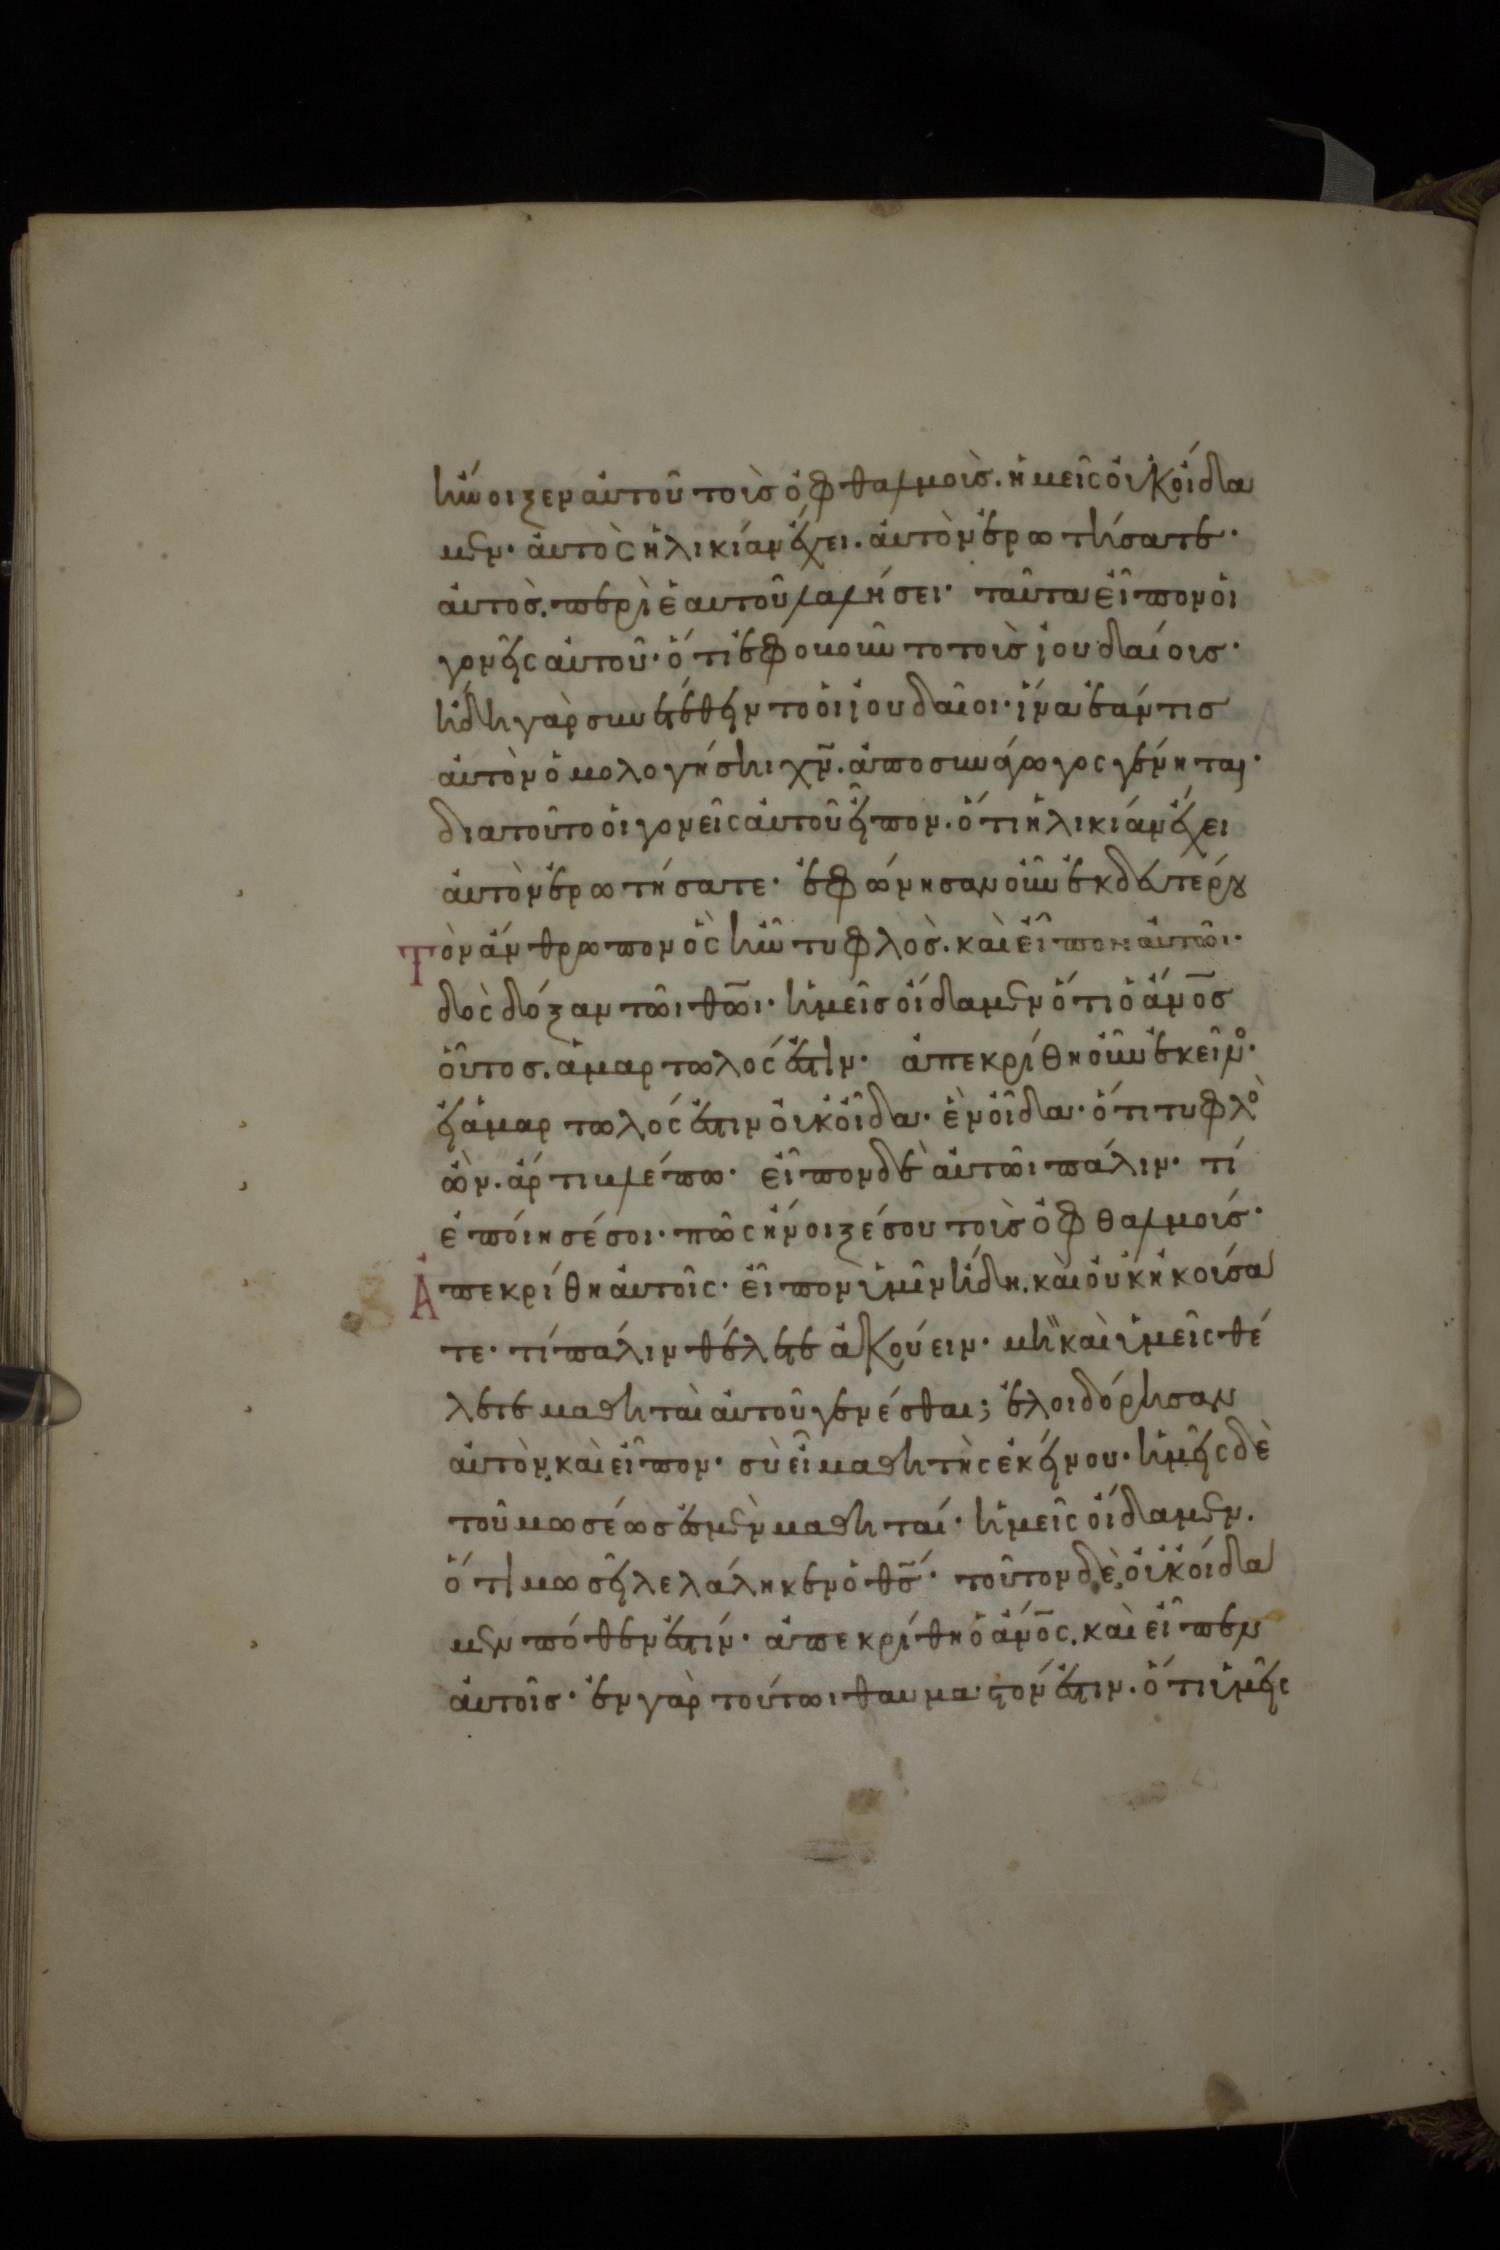 ἤνοιξεν αὐτοῦ τοὺς ὀφθαλμοὺς. ἡμεῖς οὐκ οἴδα
μεν· αὐτὸς ἡλικίαν ἔχει. αὐτὸν ἐρωτήσατε·
αὐτὸς. περὶ ἑαυτοῦ λαλήσει· ταῦτα εἶπον οἱ
γονεῖς αὐτοῦ· ὅτι ἐφοβοῦντο τοὺς ἰουδαίους·
ἤδη γὰρ συνετέθειντο οἱ ἰουδαῖοι· ἵνα ἐάν τις
αὐτὸν ὁμολογήσηι χν̅. ἀποσυνάγωγος γένηται·
διατοῦτο οἱ γονεῖς αὐτοῦ εἶπον. ὅτι ἡλικίαν ἔχει
αὐτὸν ἐρωτήσατε· ἐφώνησαν οὖν ἐκ δευτέρου
Τὸν ἄνθρωπον ὃς ἦν τυφλὸς. καὶ εἶπον αὐτῶι·
δὸς δόξαν τῶι θω̅ι· ἡμεῖς οἴδαμεν ὅτι ὁ ἄνο̅ς
οὗτος. ἁμαρτωλός ἐστιν· ἀπεκρίθη οὖν ἐκεῖνο·
εἰ ἁμαρτωλός ἐστιν οὐκ οἶδα· ἓν οἶδα· ὅτι τυφλὸ
ὢν. ἄρτι βλέπω· εἶπον δὲ αὐτῶι πάλιν· τί
ἐποίησέ σοι· πῶς ἤνοιξέ σου τοὺς ὀφθαλμούς·
Ἀπεκρίθη αὐτοῖς· εἶπον ὑμῖν ἤδη. καὶ οὐκ ἠκούσα
τε· τί πάλιν θέλετε ἀκούειν· μὴ καὶ ὑμεῖς θέ
λετε μαθηταὶ αὐτοῦ γενέσθαι; ἐλοιδόρησαν
αὐτὸν, καὶ εἶπον· σὺ εἶ μαθητὴς ἐκείνου· ἡμεῖς δὲ
τοῦ μωσέως ἐσμὲν μαθηταί· ἡμεῖς οἴδαμεν.
ὅτι μωσῆ λελάληκεν ὁ θς̅· τοῦτον δὲ, οὐκ οἴδα
μεν πόθεν ἐστίν· ἀπεκρίθη ὁ ἄνο̅ς. καὶ εἶπεν
αὐτοῖς· ἐν γὰρ τούτωι θαυμαστόν ἐστιν. ὅτι ὑμεῖς